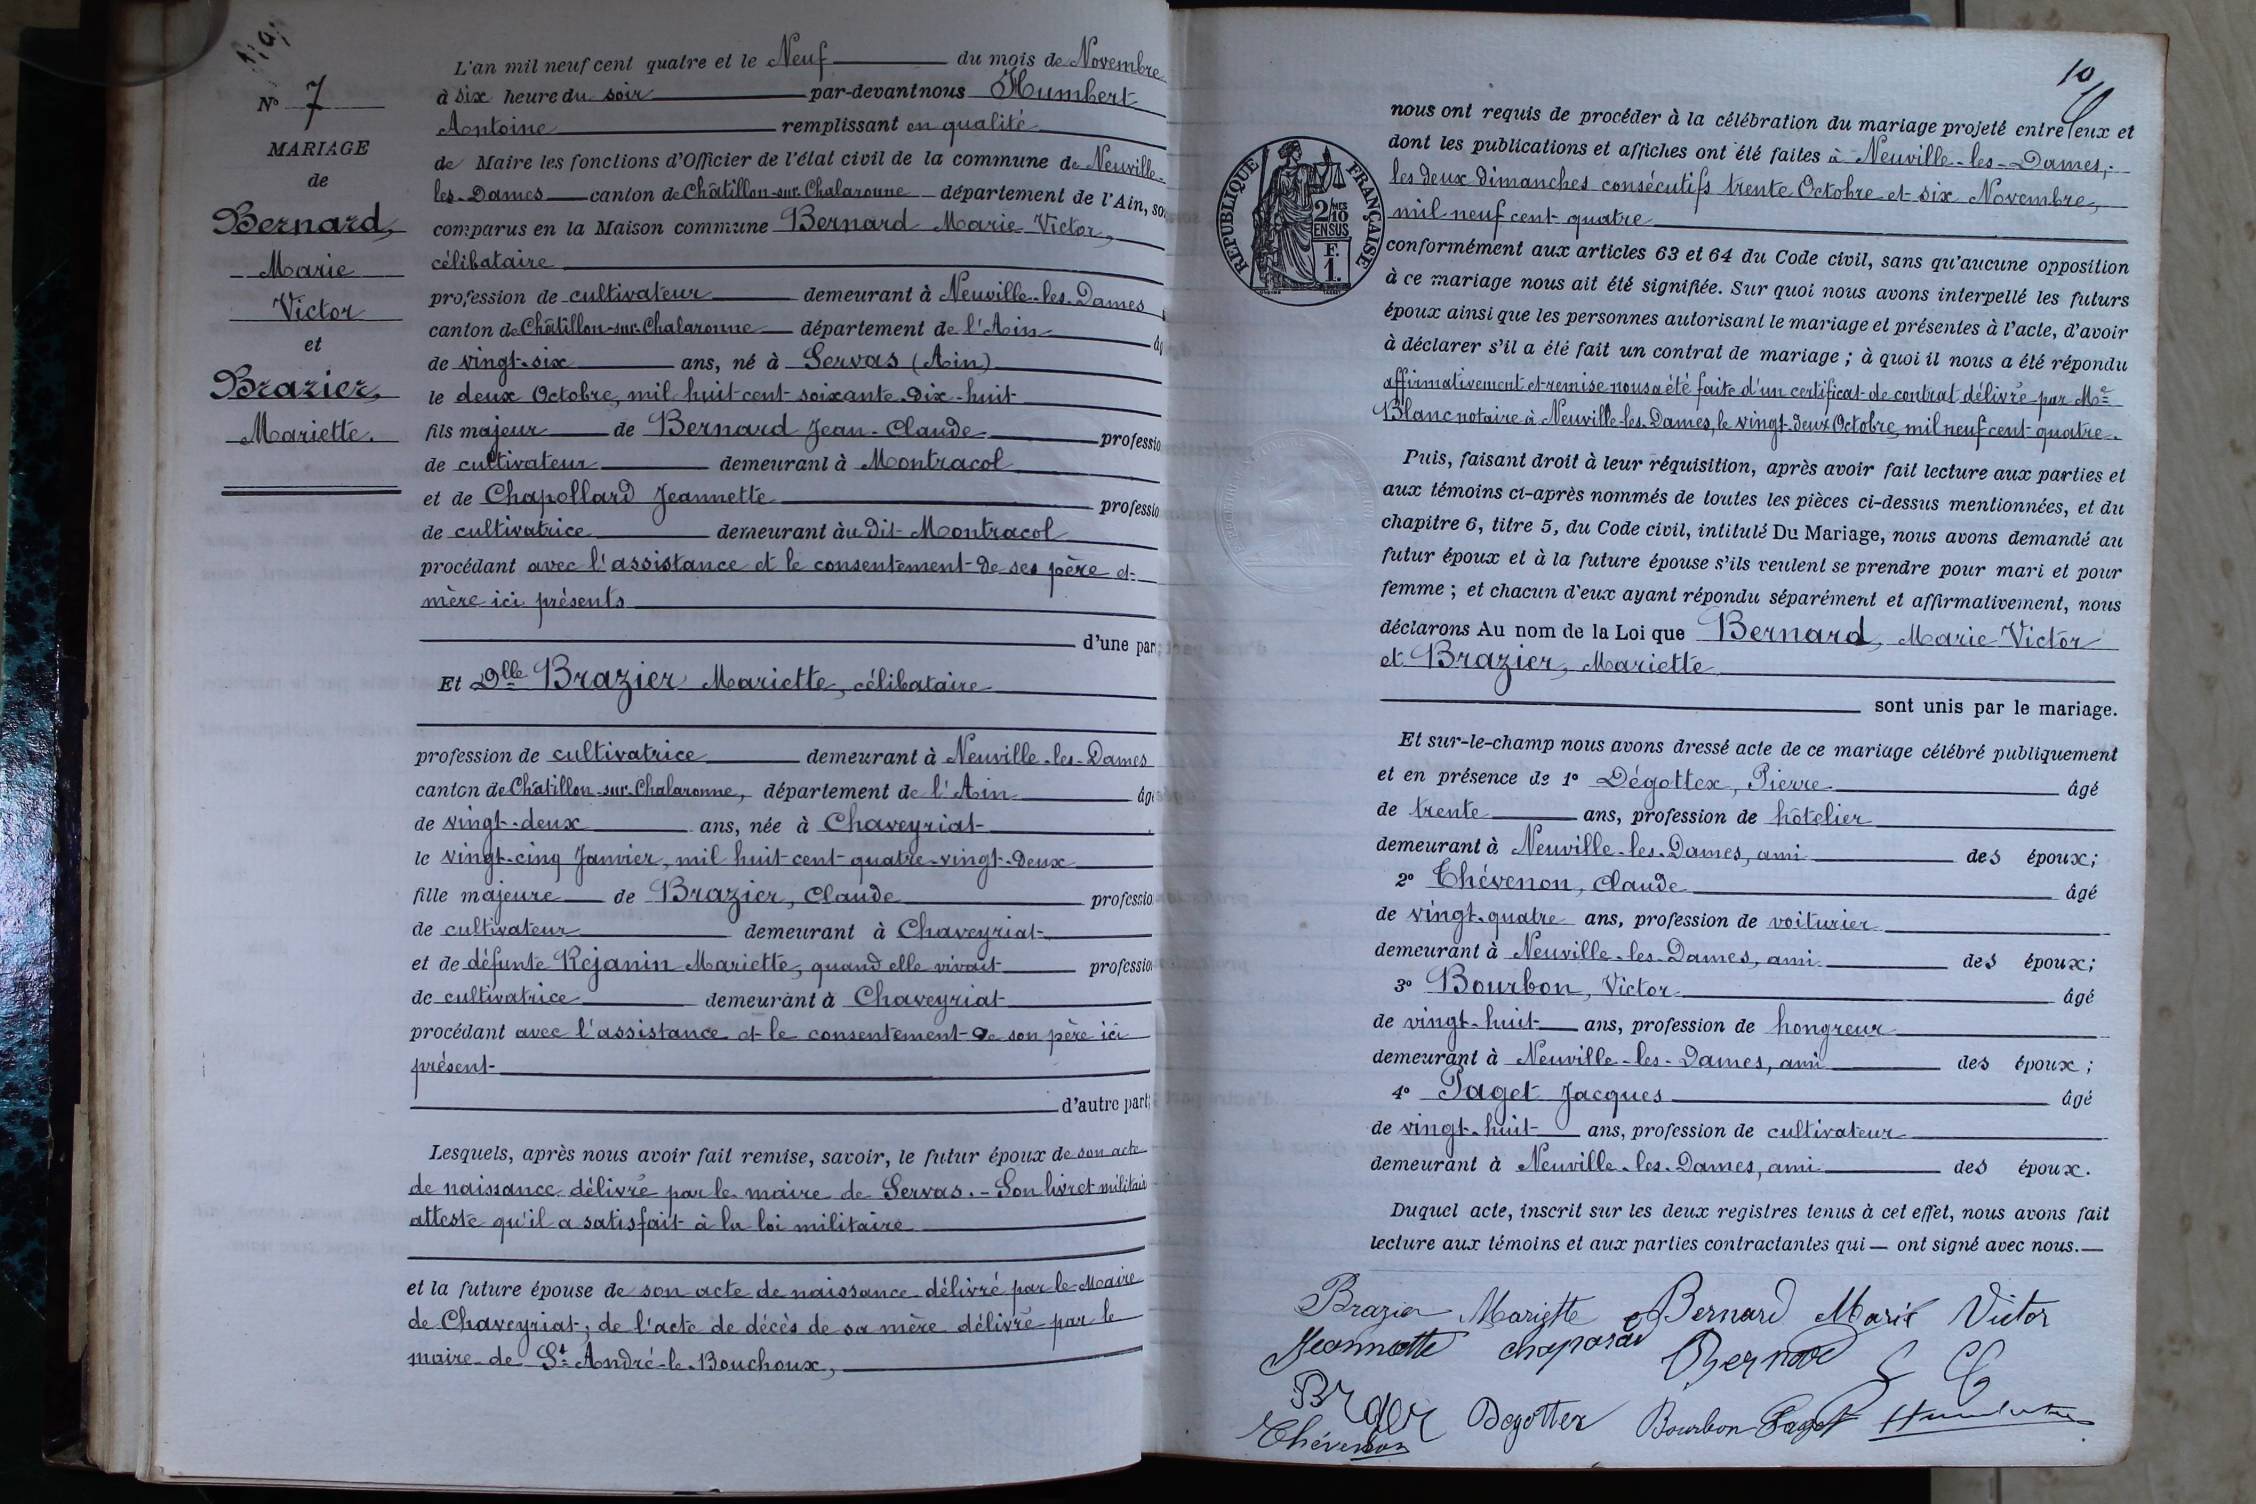 N° 7
MARIAGE
de
Bernard,
Marie
Victor
et
Brazier,
Mariette.
L'an mil neuf cent quatre et le Neuf du mois de Novembre
à six heure du soir par-devant nous Humbert
Antoine remplissant en qualité
de Maire les fonctions d'Officier de l'état civil de la commune de Neuville-
les-Dames canton de Châtillon-sur-Chalaronne département de l'Ain, so
comparus en la Maison commune Bernard Marie Victor,
célibataire
profession de cultivateur demeurant à Neuville-les-Dames
canton de Châtillon-sur-Chalaronne département de l'Ain âg
de vingt-six ans, né à Servas (Ain)
le deux Octobre, mil huit cent soixante-dix-huit
fils majeur de Bernard Jean-Claude professio
de cultivateur demeurant à Montracol
et de Chapollard Jeannette professio
de cultivatrice demeurant àu dit Montracol
procédant avec l'assistance et le consentement de ses père et
mère ici présents
d'une part;
Et Dlle Brazier Mariette, célibataire
profession de cultivatrice demeurant à Neuville-les-Dames
canton de Châtillon-sur-Chalaronne, département de l'Ain âgé
de vingt-deux ans, née à Chaveyriat
le vingt-cinq Janvier, mil huit cent quatre-vingt-deux
fille majeure de Brazier, Claude professio
de cultivateur demeurant à Chaveyriat
et de défunte Rejanin Mariette, quand elle vivait profession
de cultivatrice demeurant à Chaveyriat
procédant avec l'assistance et le consentement de son père ici
présent
d'autre part;
Lesquels, après nous avoir fait remise, savoir, le futur époux de son acte
de naissance délivré par le maire de Servas. - Son livret militair
atteste qu'il a satisfait à la loi militaire
et la future épouse de son acte de naissance délivré par le Maire
de Chaveyriat; de l'acte de décès de sa mère délivré par le
maire de St André-le-Bouchoux,
10
RÉPUBLIQUE FRANÇAISE
2/10 MES
EN SUS
F.
1.
nous ont requis de procéder à la célébration du mariage projeté entre eux et
dont les publications et affiches ont été faites à Neuville-les-Dames,
les deux dimanches consécutifs trente Octobre et six Novembre,
mil neuf cent quatre
conformément aux articles 63 et 64 du Code civil, sans qu'aucune opposition
à ce mariage nous ait été signifiée. Sur quoi nous avons interpellé les futurs
époux ainsi que les personnes autorisant le mariage et présentes à l'acte, d'avoir
à déclarer s'il a été fait un contrat de mariage ; à quoi il nous a été répondu
affirmativement et remise nous a été faite d'un certificat de contrat délivré par Me
Blanc notaire à Neuville-les-Dames, le vingt-deux Octobre, mil neuf cent quatre.
Puis, faisant droit à leur réquisition, après avoir fait lecture aux parties et
aux témoins ci-après nommés de toutes les pièces ci-dessus mentionnées, et du
chapitre 6, titre 5, du Code civil, intitulé Du Mariage, nous avons demandé au
futur époux et à la future épouse s'ils veulent se prendre pour mari et pour
femme ; et chacun d'eux ayant répondu séparément et affirmativement, nous
déclarons Au nom de la Loi que Bernard, Marie Victor
et Brazier, Mariette
sont unis par le mariage.
Et sur-le-champ nous avons dressé acte de ce mariage célébré publiquement
et en présence de 1° Dégottex, Pierre âgé
de trente ans, profession de hôtelier
demeurant à Neuville-les-Dames, ami des époux;
2° Thévenon, Claude âgé
de vingt-quatre ans, profession de voiturier
demeurant à Neuville-les-Dames, ami des époux;
3° Bourbon, Victor âgé
de vingt-huit ans, profession de hongreur
demeurant à Neuville-les-Dames, ami des époux ;
4° Paget Jacques âgé
de vingt-huit ans, profession de cultivateur
demeurant à Neuville-les-Dames, ami des époux.
Duquel acte, inscrit sur les deux registres tenus à cet effet, nous avons fait
lecture aux témoins et aux parties contractantes qui — ont signé avec nous.—
Brazier Mariette Bernard Marie Victor
Jeannette chapolar Bernard
Degottex Bourbon Paget
Thévenon